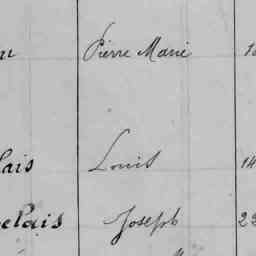 Pierre Marie
lais Louis 14
elais Joseph 22